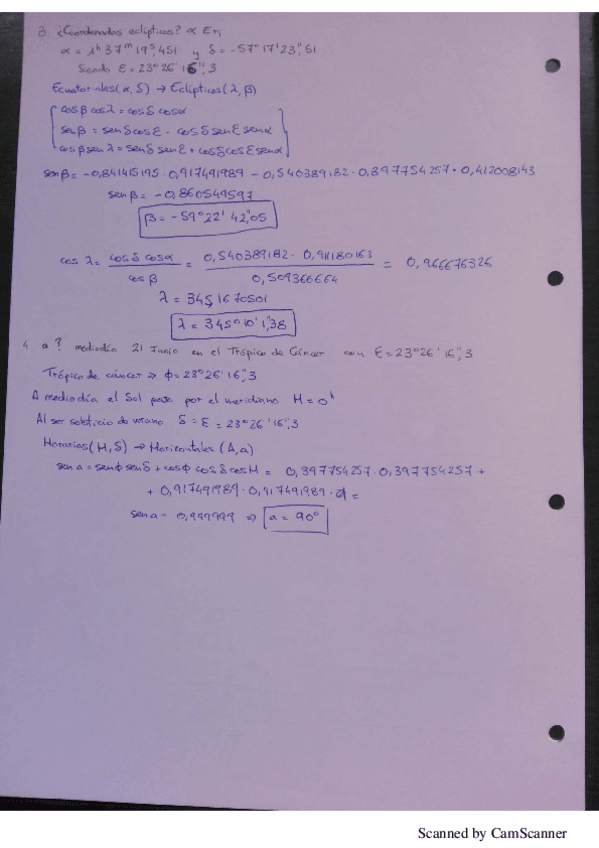 3. ¿Coordenadas eclípticas? α Eri
α = 1h 37m 19s,451 y δ = -57º 17' 23'',51
Siendo ε = 23º 26' 16'',3
Ecuatoriales (α, δ) → Eclípticas (λ, β)
cosβ cosλ = cosδ cosα
senβ = senδ cosε - cosδ senε senα
cosβ senλ = senδ senε + cosδ cosε senα
senβ = -0,841415195 · 0,917491989 - 0,540389182 · 0,397754257 · 0,412008143
senβ = -0,860549597
β = -59º 22' 42'',05
cos λ = cosδ cosα / cosβ = 0,540389182 · 0,911180163 / 0,509366664 = 0,966676326
λ = 345,1670501
λ = 345º 10' 1'',38
4. a? mediodía 21 Junio en el Trópico de Cáncer con ε = 23º 26' 16'',3
Trópico de cáncer ⇒ ϕ = 23º 26' 16'',3
A mediodía el Sol pasa por el meridiano H = 0h
Al ser solsticio de verano δ = ε = 23º 26' 16'',3
Horarias (H, δ) → Horizontales (A, a)
sen a = senϕ senδ + cosϕ cosδ cosH = 0,397754257 · 0,397754257 +
+ 0,917491989 · 0,917491989 · 1 =
sen a = 0,999999 ⇒ a = 90º
Scanned by CamScanner